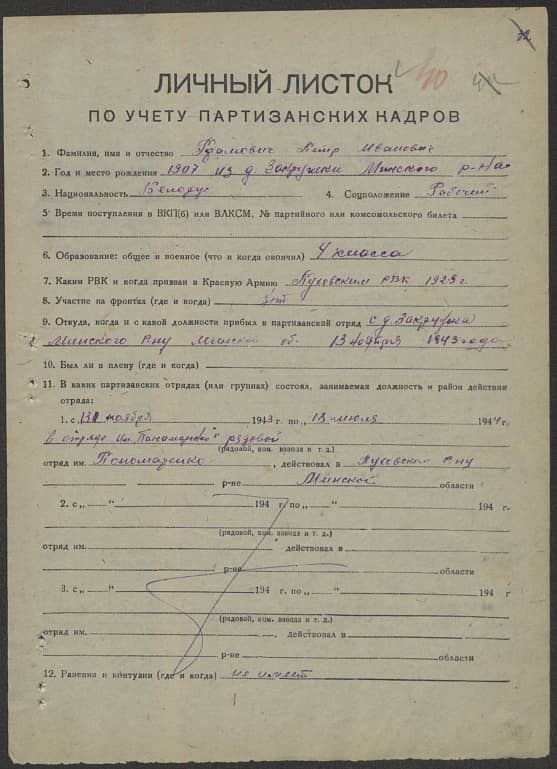 ЛИЧНЫЙ ЛИСТОК
ПО УЧЕТУ ПАРТИЗАНСКИХ КАДРОВ
1. Фамилия, имя и отчество Петр Иванович
2. Год и место рождения 1907 из д. Закружки Минского р-на
3. Национальность Белорус 4. Соцположение Рабочий
5 Время поступления в ВКП(б) или ВЛКСМ, № партийного или комсомольского билета
6. Образование: общее и военное (что и когда окончил) 4 класса
7. Каким РВК и когда призван в Красную Армию Пуховским РВК 1923 г.
8. Участие на фронтах (где и когда) нет
9. Откуда, когда и с какой должности прибыл в партизанский отряд с д. Закружка
Минского р-ну Минской об. 13 ноября 1943 года
10. Был ли в плену (где и когда)
11. В каких партизанских отрядах (или группах) состоял, занимаемая должность и район действия
отряда:
1. с 13 ноября 1943 г. по „ 18 июля 1944 г.
в отряде им. рядовой
(рядовой, ком. взвода и т. д.)
отряд им. Пономаренко , действовал в Пуховском р-ну
р-не Минской области
2. с „ “ 194 г. по „ “ 194 г.
(рядовой, ком. взвода и т. д.)
отряд им. действовал в
р-не области
3. с „ “ 194 г. по „ “ 194 г
(рядовой, ком. взвода и т. д.)
отряд им. , действовал в
р-не области
12. Ранения и контузии (где и когда) не имеет